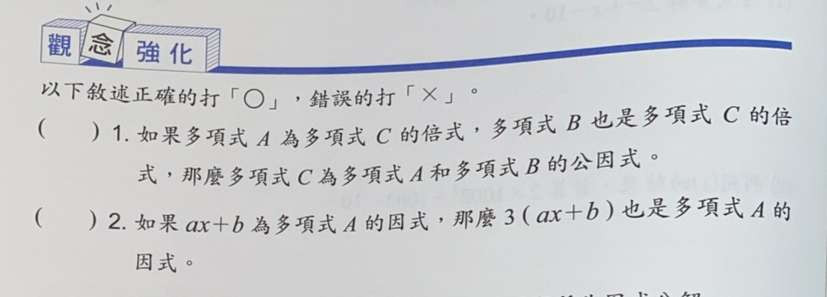 觀念強化
以下敘述正確的打「○」，錯誤的打「×」。
(　　) 1. 如果多項式 A 為多項式 C 的倍式，多項式 B 也是多項式 C 的倍
式，那麼多項式 C 為多項式 A 和多項式 B 的公因式。
(　　) 2. 如果 ax＋b 為多項式 A 的因式，那麼 3（ax＋b）也是多項式 A 的
因式。